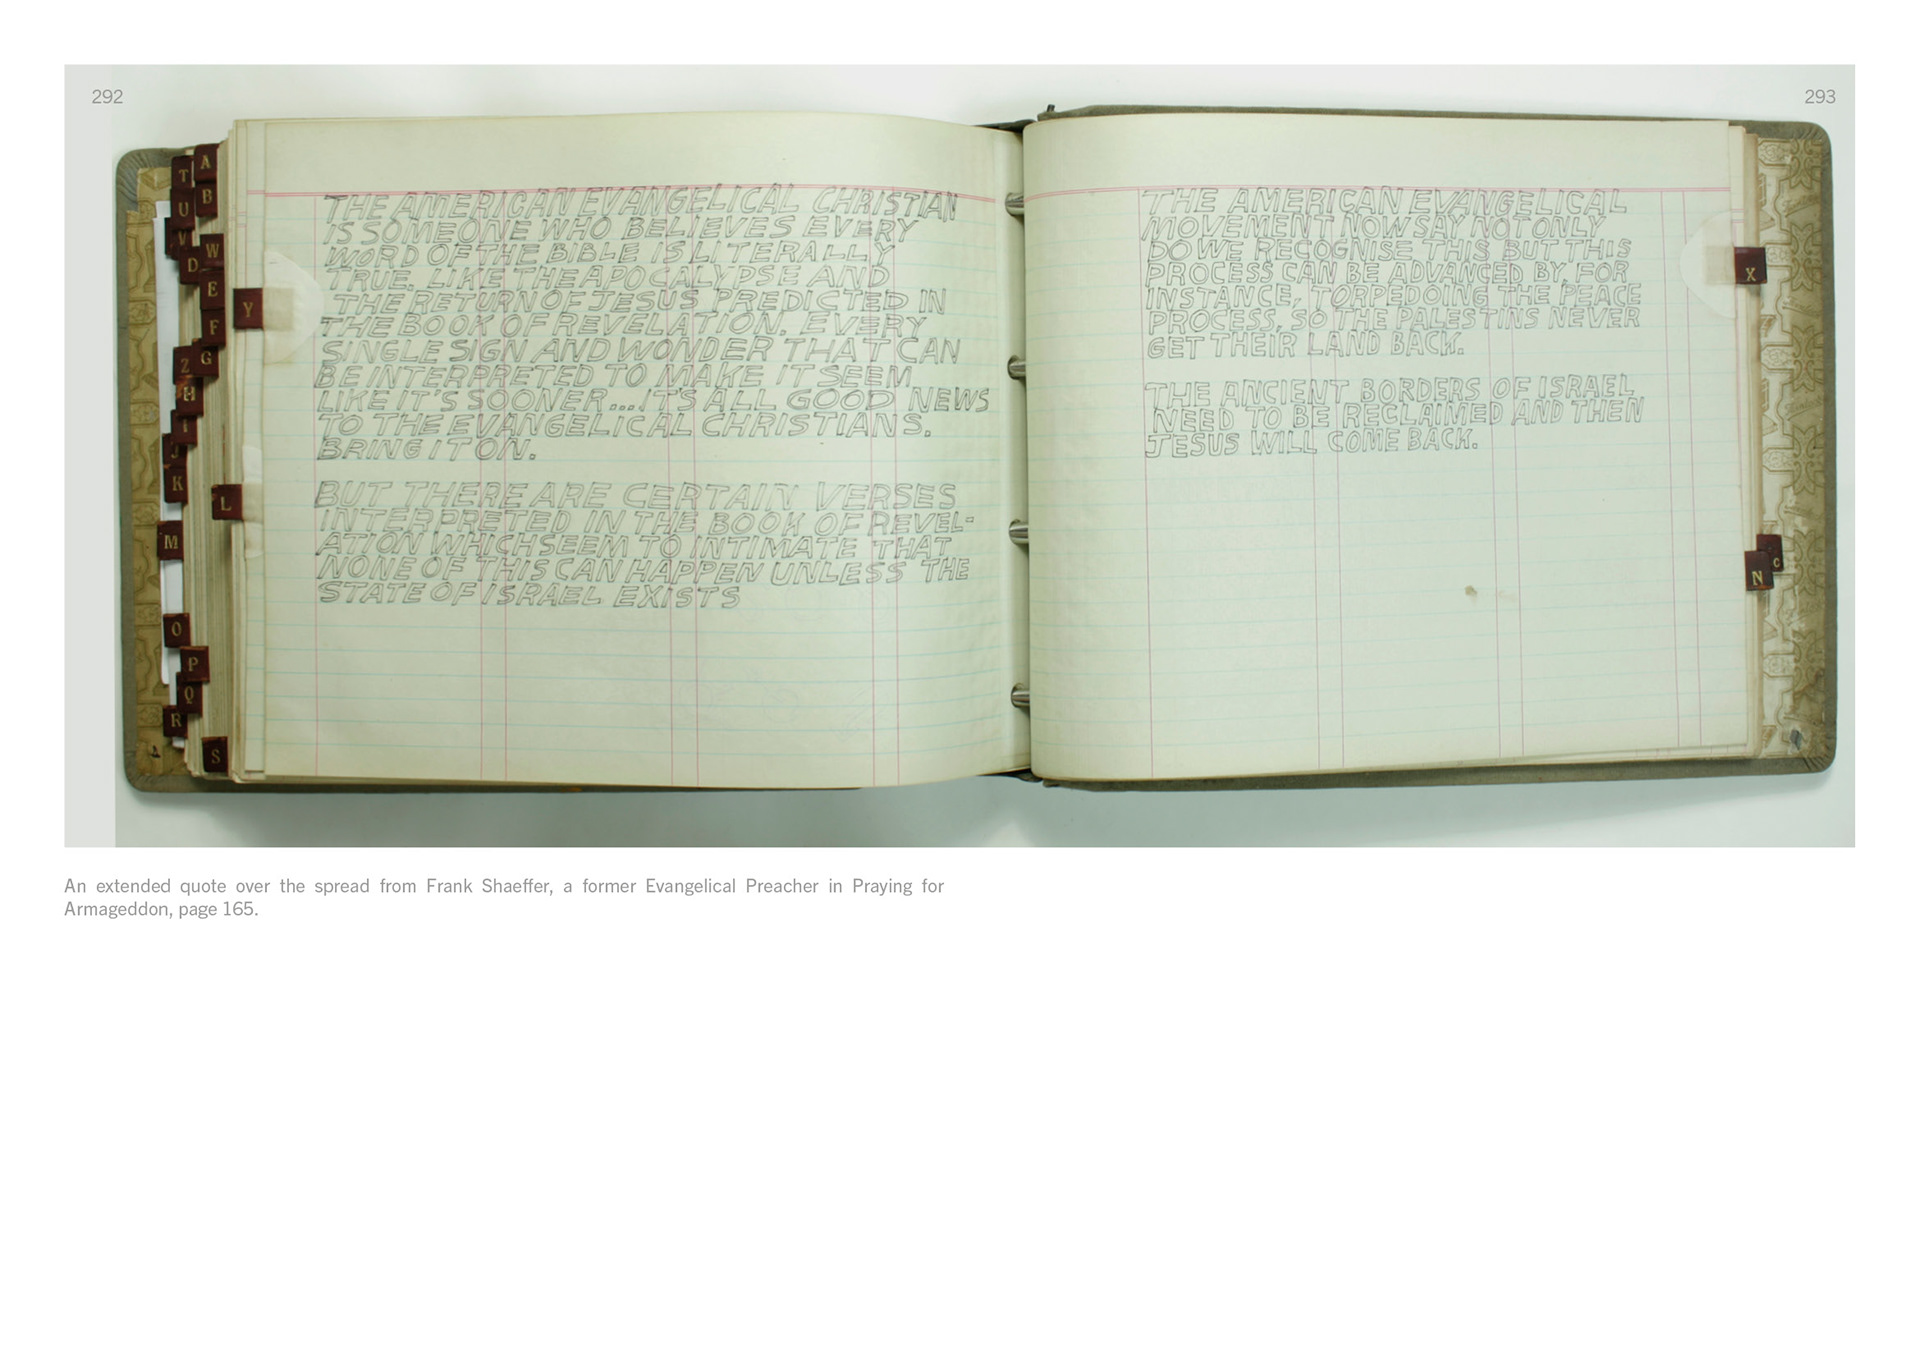 292
293
A
T
B
U
V
W
D
E
Y
F
G
Z
H
I
J
K
L
M
O
P
Q
R
S
THE AMERICAN EVANGELICAL CHRISTIAN
IS SOMEONE WHO BELIEVES EVERY
WORD OF THE BIBLE IS LITERALLY
TRUE. LIKE THE APOCALYPSE AND
THE RETURN OF JESUS PREDICTED IN
THE BOOK OF REVELATION. EVERY
SINGLE SIGN AND WONDER THAT CAN
BE INTERPRETED TO MAKE IT SEEM
LIKE IT'S SOONER...IT'S ALL GOOD NEWS
TO THE EVANGELICAL CHRISTIANS.
BRING IT ON.
BUT THERE ARE CERTAIN VERSES
INTERPRETED IN THE BOOK OF REVEL-
ATION WHICH SEEM TO INTIMATE THAT
NONE OF THIS CAN HAPPEN UNLESS THE
STATE OF ISRAEL EXISTS
THE AMERICAN EVANGELICAL
MOVEMENT NOW SAY NOT ONLY
DO WE RECOGNISE THIS BUT THIS
PROCESS CAN BE ADVANCED BY, FOR
INSTANCE, TORPEDOING THE PEACE
PROCESS, SO THE PALESTINS NEVER
GET THEIR LAND BACK.
THE ANCIENT BORDERS OF ISRAEL
NEED TO BE RECLAIMED AND THEN
JESUS WILL COME BACK.
X
C
N
An extended quote over the spread from Frank Shaeffer, a former Evangelical Preacher in Praying for
Armageddon, page 165.